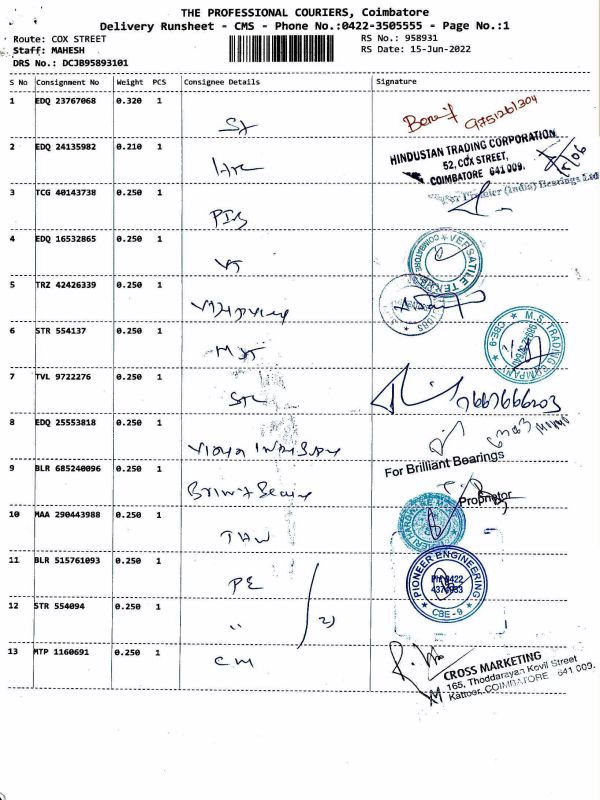 THE PROFESSIONAL COURIERS, Coimbatore
Delivery Runsheet - CMS - Phone No.:0422-3505555 - Page No.:1
Route: COX STREET
RS No.: 958931
Staff: MAHESH
RS Date: 15-Jun-2022
DRS No.: DCJB95893101
S No Consignment No Weight PCS Consignee Details Signature
1 EDQ 23767068 0.320 1
9751261304
2 EDQ 24135982 0.210 1
HINDUSTAN TRADING CORPORATION
52, COX STREET,
COIMBATORE 641 009.
3 TCG 40143738 0.250 1
Premier (India) Bearings Ltd
4 EDQ 16532865 0.250 1 VT
VERSATILE
COIMBATORE
5 TRZ 42426339 0.250 1
6 STR 554137 0.250 1
M.S. TRADING COMPANY
CBE-9
7 TVL 9722276 0.250 1 STC
7667666203
8 EDQ 25553818 0.250 1
For Brilliant Bearings
Proprietor
9 BLR 685240096 0.250 1
10 MAA 290443988 0.250 1 THW
11 BLR 515761093 0.250 1 PE
PIONEER ENGINEERING
CBE - 9
12 STR 554094 0.250 1 " 2)
13 MTP 1160691 0.250 1 CM
CROSS MARKETING
165, Thoddarayan Kovil Street
Kattoor, COIMBATORE - 641 009.